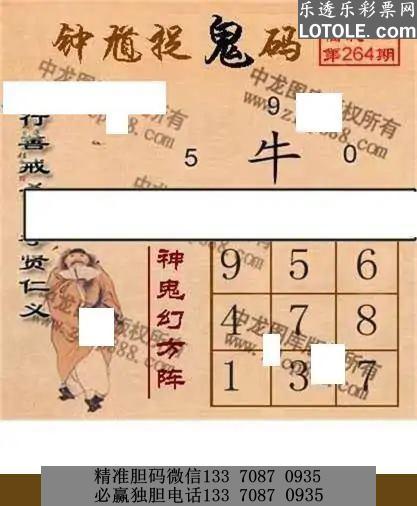 乐透乐彩票网
LOTOLE.COM
钟馗捉鬼码
第264期
中龙图库版权所有
9
行善戒
贤仁义
5 牛 0
神鬼幻方阵
9 5 6
4 7 8
1 3 7
精准胆码微信133 7087 0935
必赢独胆电话133 7087 0935